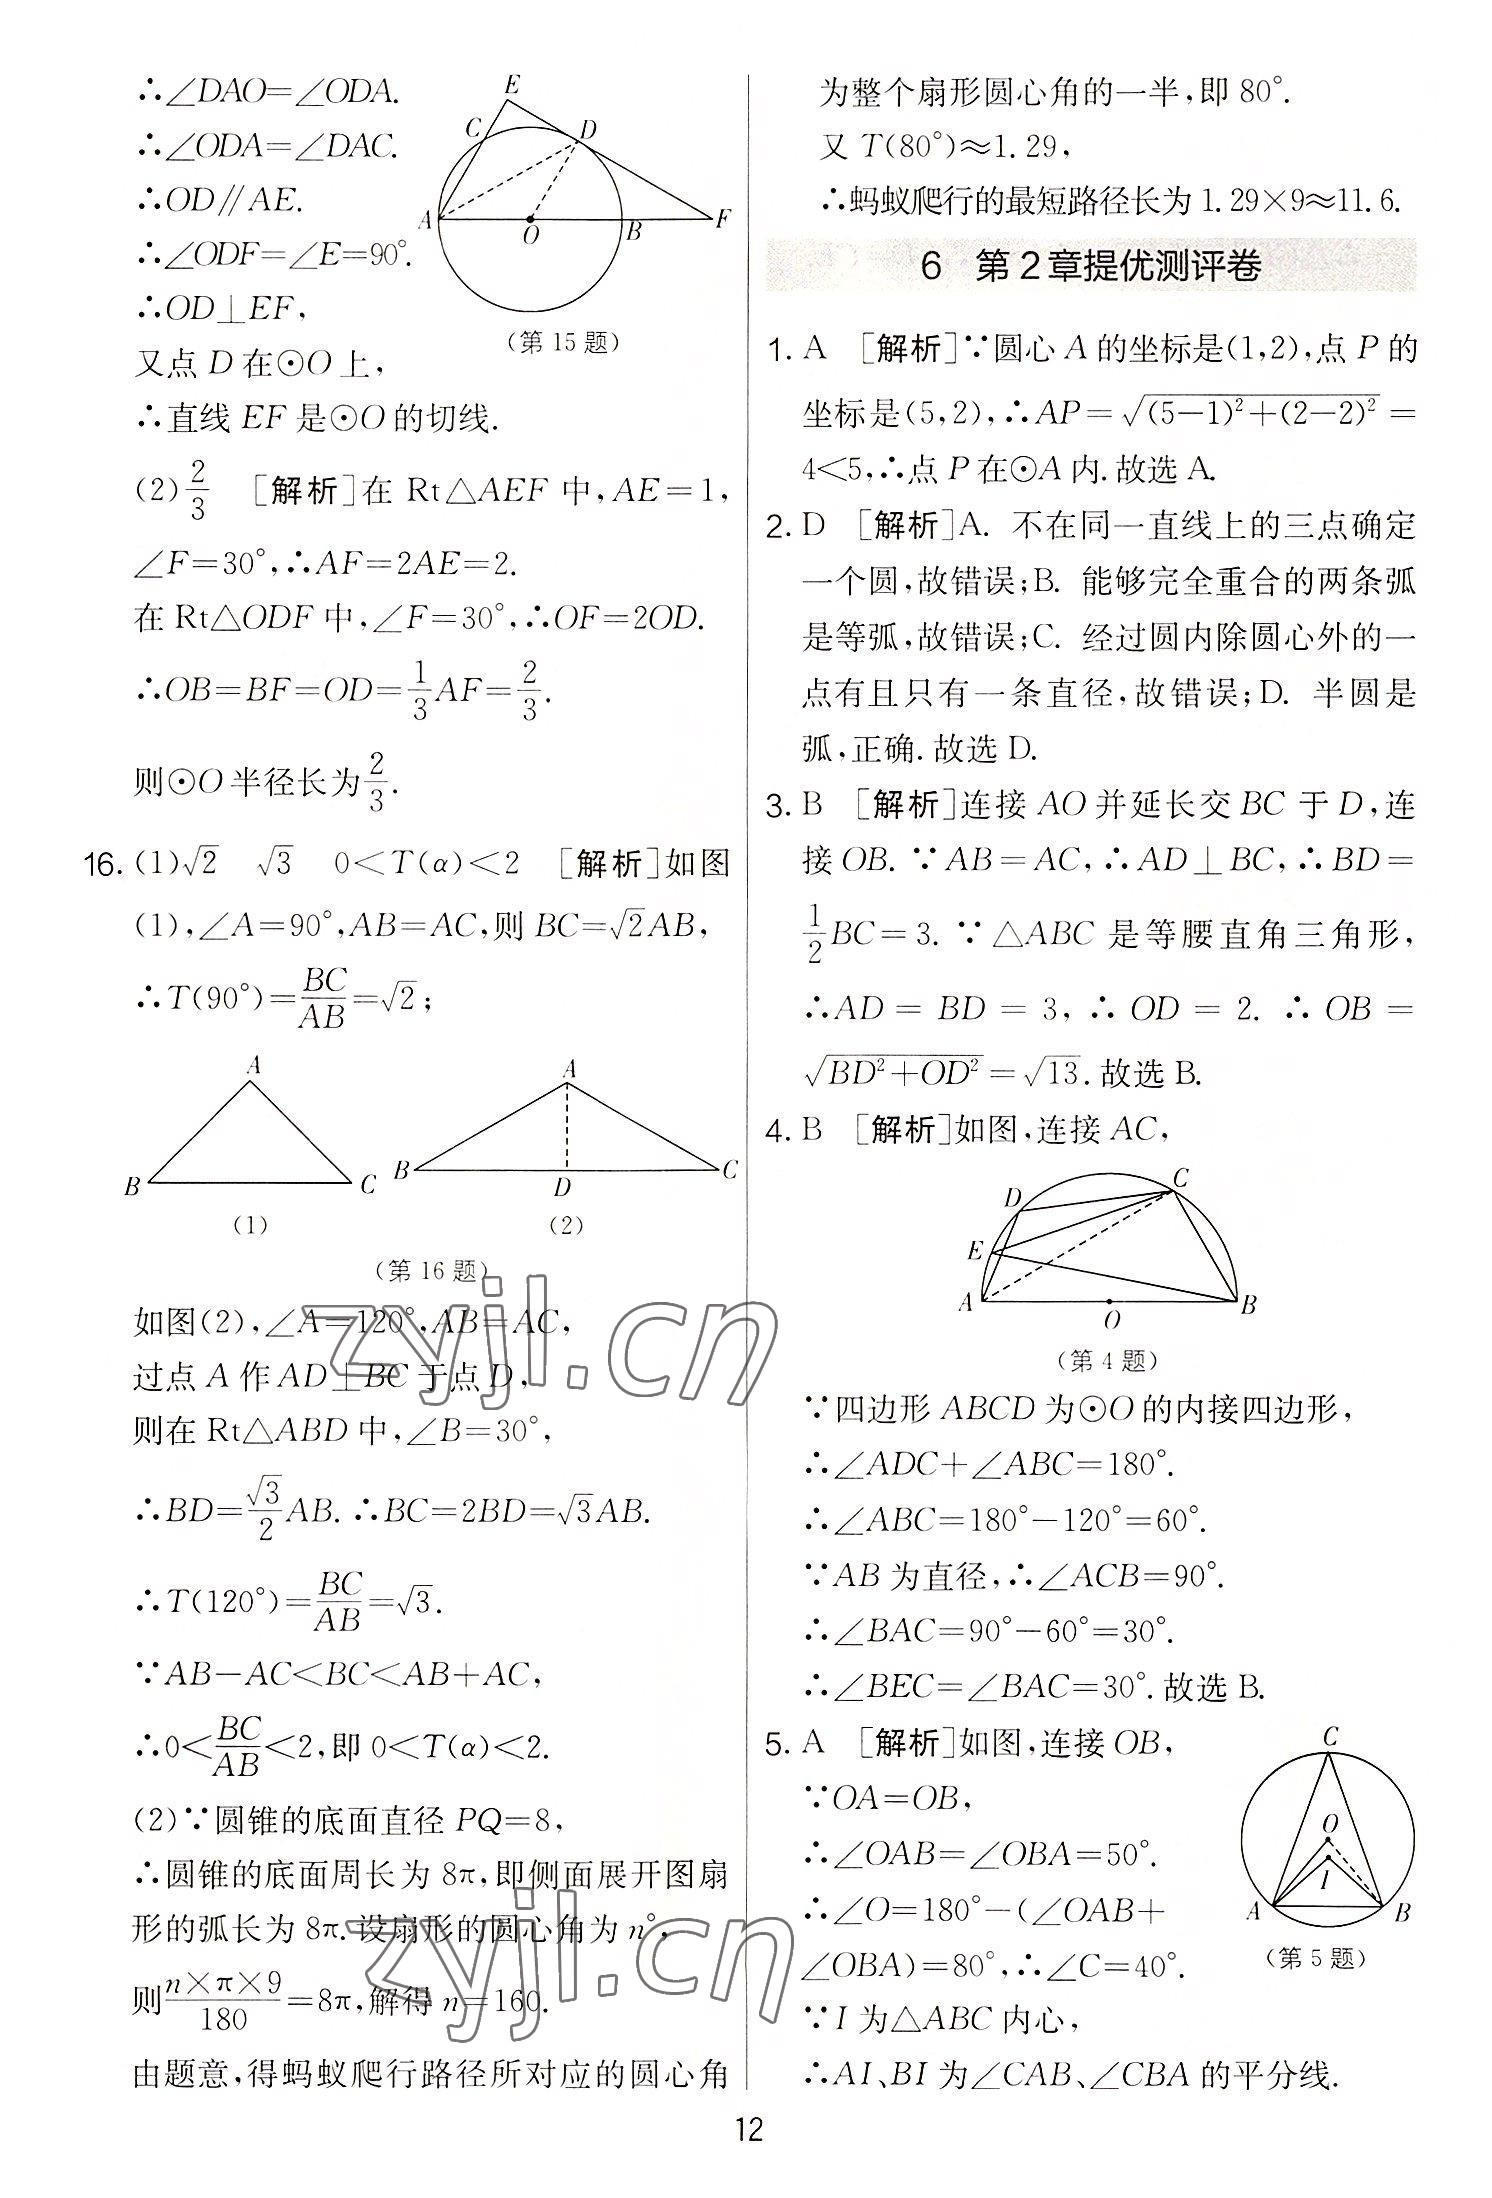 ∴∠DAO=∠ODA.
∴∠ODA=∠DAC.
∴OD∥AE.
∴∠ODF=∠E=90°.
∴OD⊥EF,
又点 D 在⊙O 上,
∴直线 EF 是⊙O 的切线.
E
C
D
A
O
B
F
(第 15 题)
(2) 2/3 [解析]在 Rt△AEF 中,AE=1,
∠F=30°,∴AF=2AE=2.
在 Rt△ODF 中,∠F=30°,∴OF=2OD.
∴OB=BF=OD=1/3 AF=2/3.
则⊙O 半径长为 2/3.
16. (1)√2 √3 0<T(α)<2 [解析]如图
(1),∠A=90°,AB=AC,则 BC=√2AB,
∴T(90°)=BC/AB=√2;
A
B
C
(1)
A
B
D
C
(2)
(第 16 题)
如图(2),∠A=120°,AB=AC,
过点 A 作 AD⊥BC 于点 D,
则在 Rt△ABD 中,∠B=30°,
∴BD=√3/2 AB. ∴BC=2BD=√3AB.
∴T(120°)=BC/AB=√3.
∵AB-AC<BC<AB+AC,
∴0<BC/AB<2,即 0<T(α)<2.
(2)∵圆锥的底面直径 PQ=8,
∴圆锥的底面周长为 8π,即侧面展开图扇
形的弧长为 8π.设扇形的圆心角为 n°,
则 n×π×9/180=8π,解得 n=160.
由题意,得蚂蚁爬行路径所对应的圆心角
为整个扇形圆心角的一半,即 80°.
又 T(80°)≈1.29,
∴蚂蚁爬行的最短路径长为 1.29×9≈11.6.
6 第 2 章提优测评卷
1. A [解析]∵圆心 A 的坐标是(1,2),点 P 的
坐标是(5,2),∴AP=√((5-1)²+(2-2)²)=
4<5,∴点 P 在⊙A 内.故选 A.
2. D [解析]A. 不在同一直线上的三点确定
一个圆,故错误;B. 能够完全重合的两条弧
是等弧,故错误;C. 经过圆内除圆心外的一
点有且只有一条直径,故错误;D. 半圆是
弧,正确.故选 D.
3. B [解析]连接 AO 并延长交 BC 于 D,连
接 OB. ∵AB=AC,∴AD⊥BC,∴BD=
1/2 BC=3. ∵△ABC 是等腰直角三角形,
∴AD=BD=3,∴OD=2. ∴OB=
√(BD²+OD²)=√13.故选 B.
4. B [解析]如图,连接 AC,
D
C
E
A
O
B
(第 4 题)
∵四边形 ABCD 为⊙O 的内接四边形,
∴∠ADC+∠ABC=180°.
∴∠ABC=180°-120°=60°.
∵AB 为直径,∴∠ACB=90°.
∴∠BAC=90°-60°=30°.
∴∠BEC=∠BAC=30°.故选 B.
5. A [解析]如图,连接 OB,
∵OA=OB,
∴∠OAB=∠OBA=50°.
∴∠O=180°-(∠OAB+
∠OBA)=80°,∴∠C=40°.
∵I 为△ABC 内心,
∴AI、BI 为∠CAB、∠CBA 的平分线.
C
O
I
A
B
(第 5 题)
zyjl.cn
zyjl.cn
12